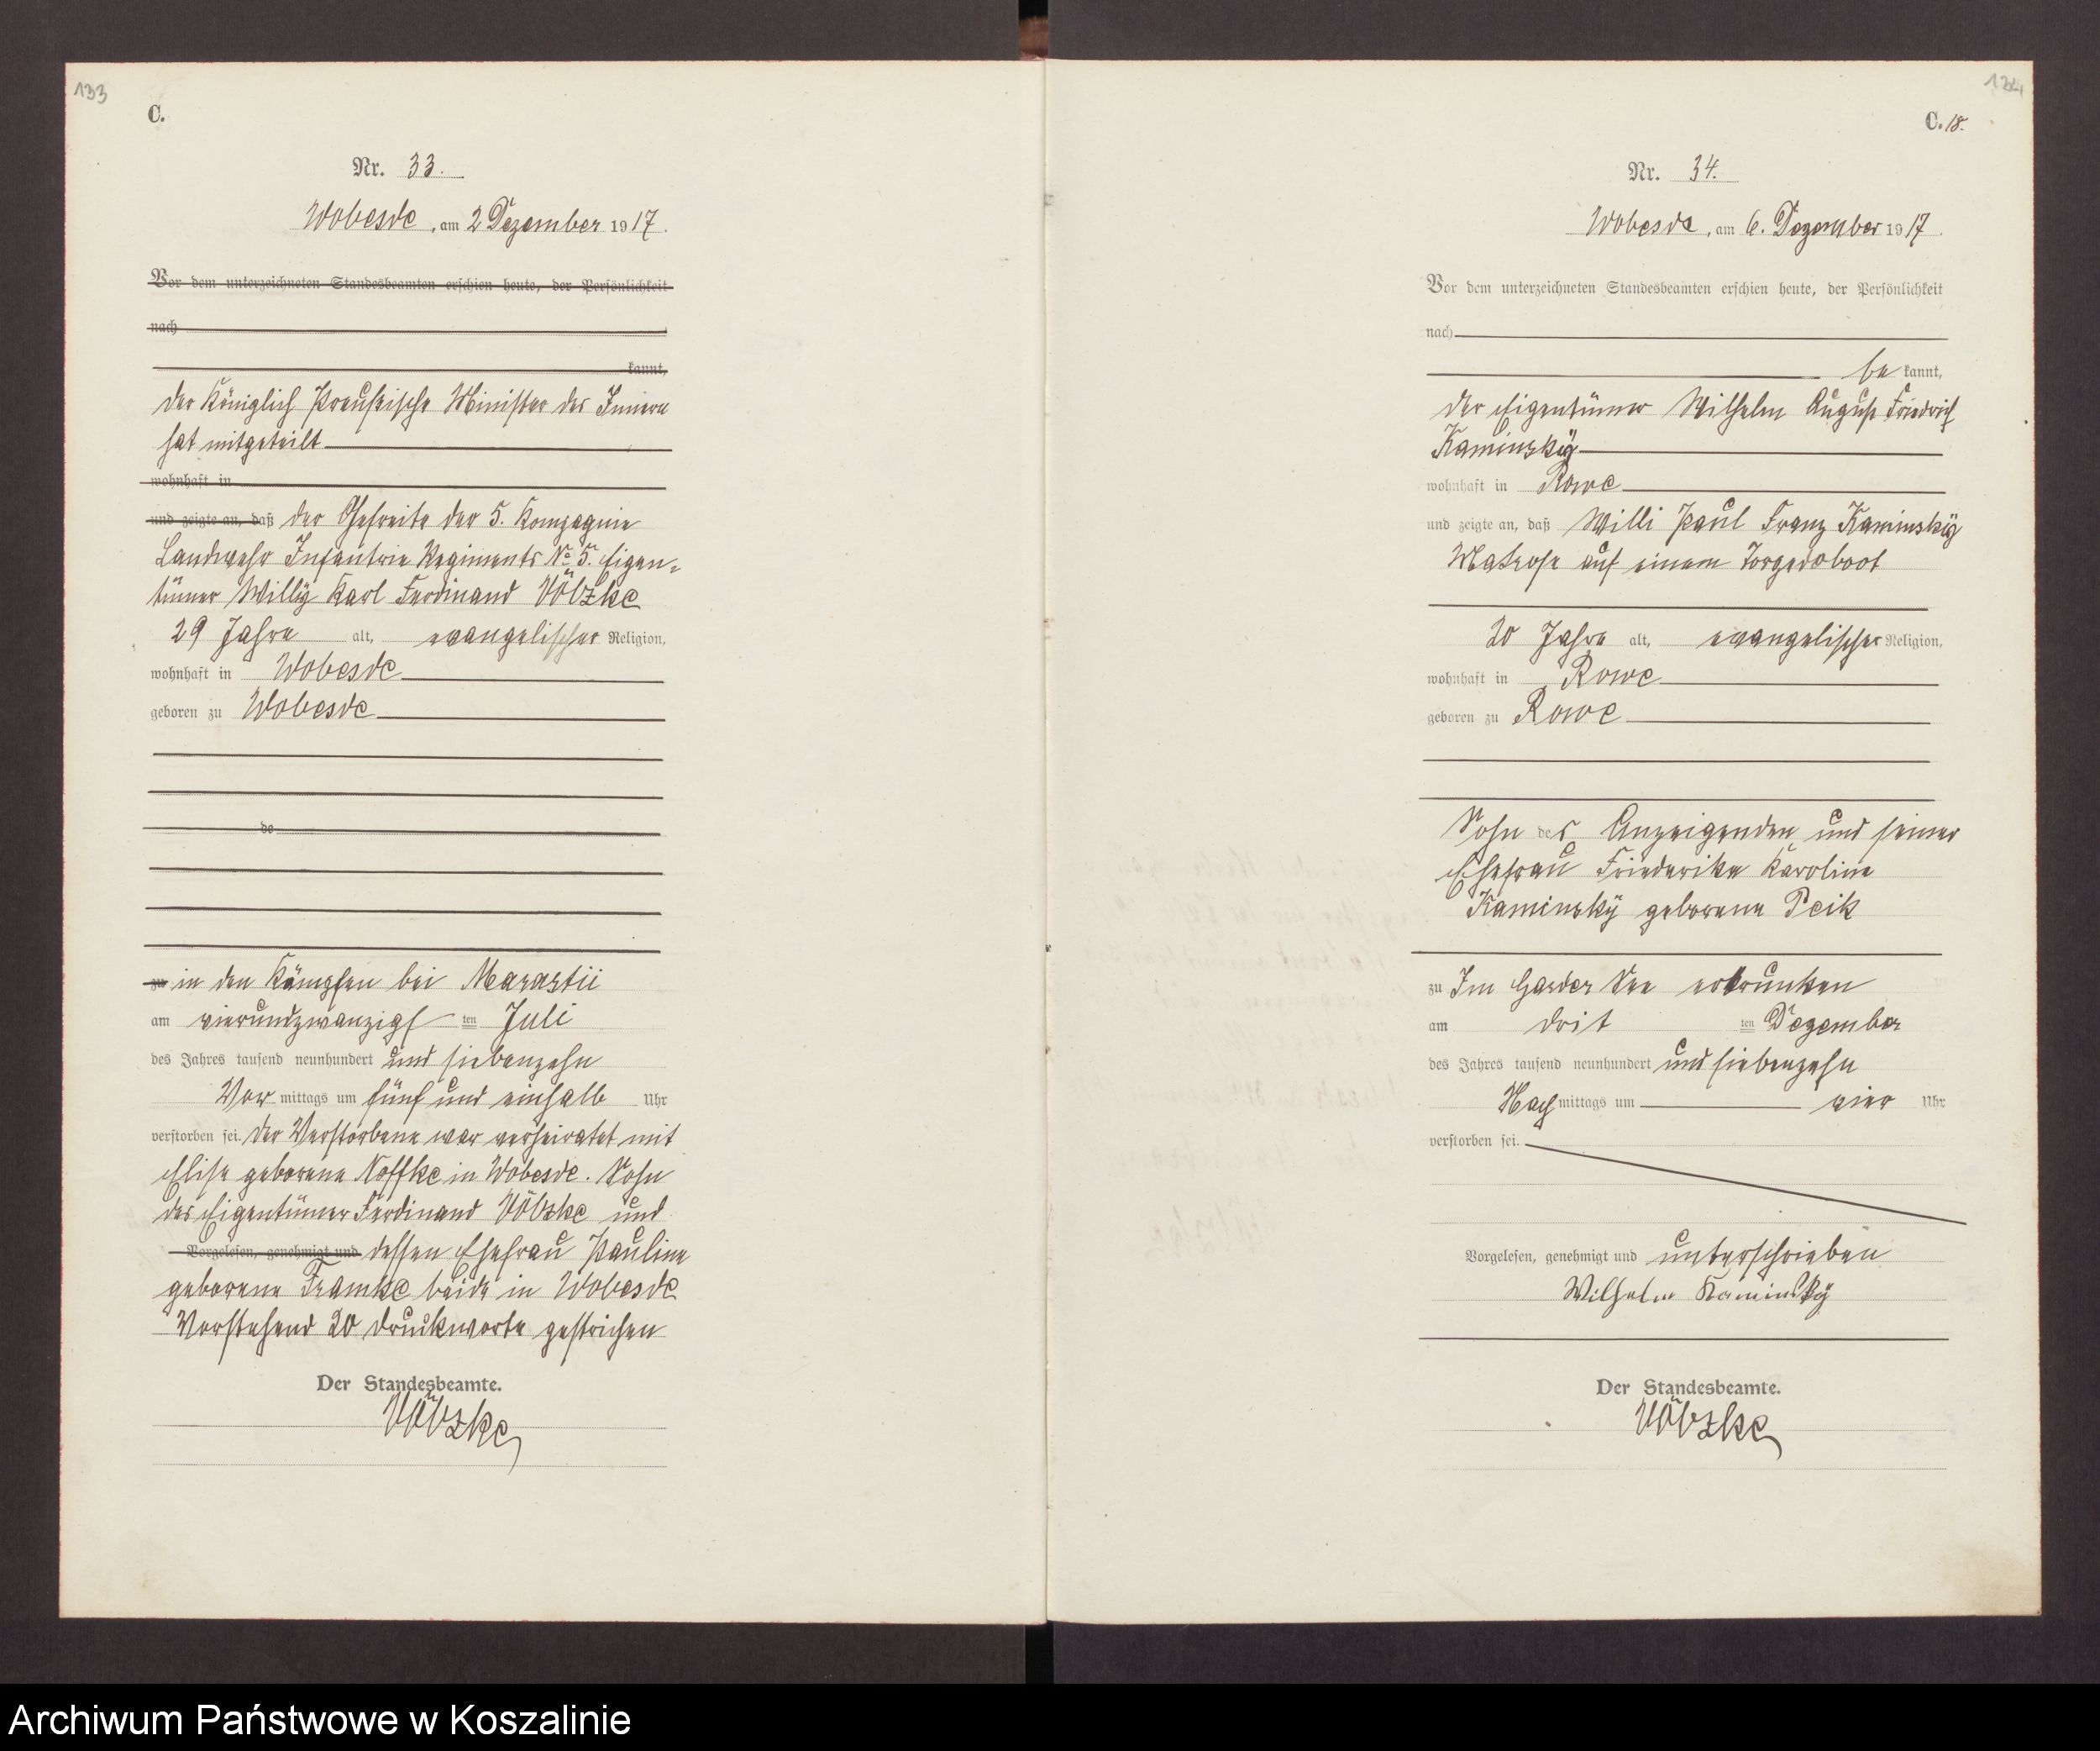 133
C.
Nr. 33.
Wobesde, am 2 Dezember 1917.
Vor dem unterzeichneten Standesbeamten erschien heute, der Persönlichkeit
nach
kannt,
der Königlich Preußische Minister des Innern
hat mitgeteilt
wohnhaft in
und zeigte an, daß der Gefreite der 5. Kompagnie
Landwehr Infantrie Regiments No 5. Eigen-
tümer Willÿ Karl Ferdinand Völzke
29 Jahre alt, evangelischer Religion,
wohnhaft in Wobesde
geboren zu Wobesde
de
zu in den Kämpfen bei Marastii
am vierundzwanzigsten Juli
des Jahres tausend neunhundert und siebenzehn
Vor mittags um fünf und einhalb Uhr
verstorben sei. Der Verstorbene war verheiratet mit
Elise geborene Noffke in Wobesde. Sohn
des Eigentümer Ferdinand Völzke und
Vorgelesen, genehmigt und dessen Ehefrau Pauline
geborene Framke beide in Wobesde
Vorstehend 20 Druckworte gestrichen
Der Standesbeamte.
Völzke
134
C. 18.
Nr. 34.
Wobesde, am 6. Dezember 1917.
Vor dem unterzeichneten Standesbeamten erschien heute, der Persönlichkeit
nach
be kannt,
der Eigentümer Wilhelm August Friedrich
Kaminskÿ
wohnhaft in Rowe
und zeigte an, daß Willi Paul Franz Kaminskÿ
Matrose auf einem Torpedoboot
20 Jahre alt, evangelischer Religion,
wohnhaft in Rowe
geboren zu Rowe
Sohn des Anzeigenden und seiner
Ehefrau Friederike Karoline
Kaminskÿ geborene Peik
zu Im Garder See ertrunken
am dritten Dezember
des Jahres tausend neunhundert und siebenzehn
Nach mittags um vier Uhr
verstorben sei.
Vorgelesen, genehmigt und unterschrieben
Wilhelm Kaminskÿ
Der Standesbeamte.
Völzke
Archiwum Państwowe w Koszalinie